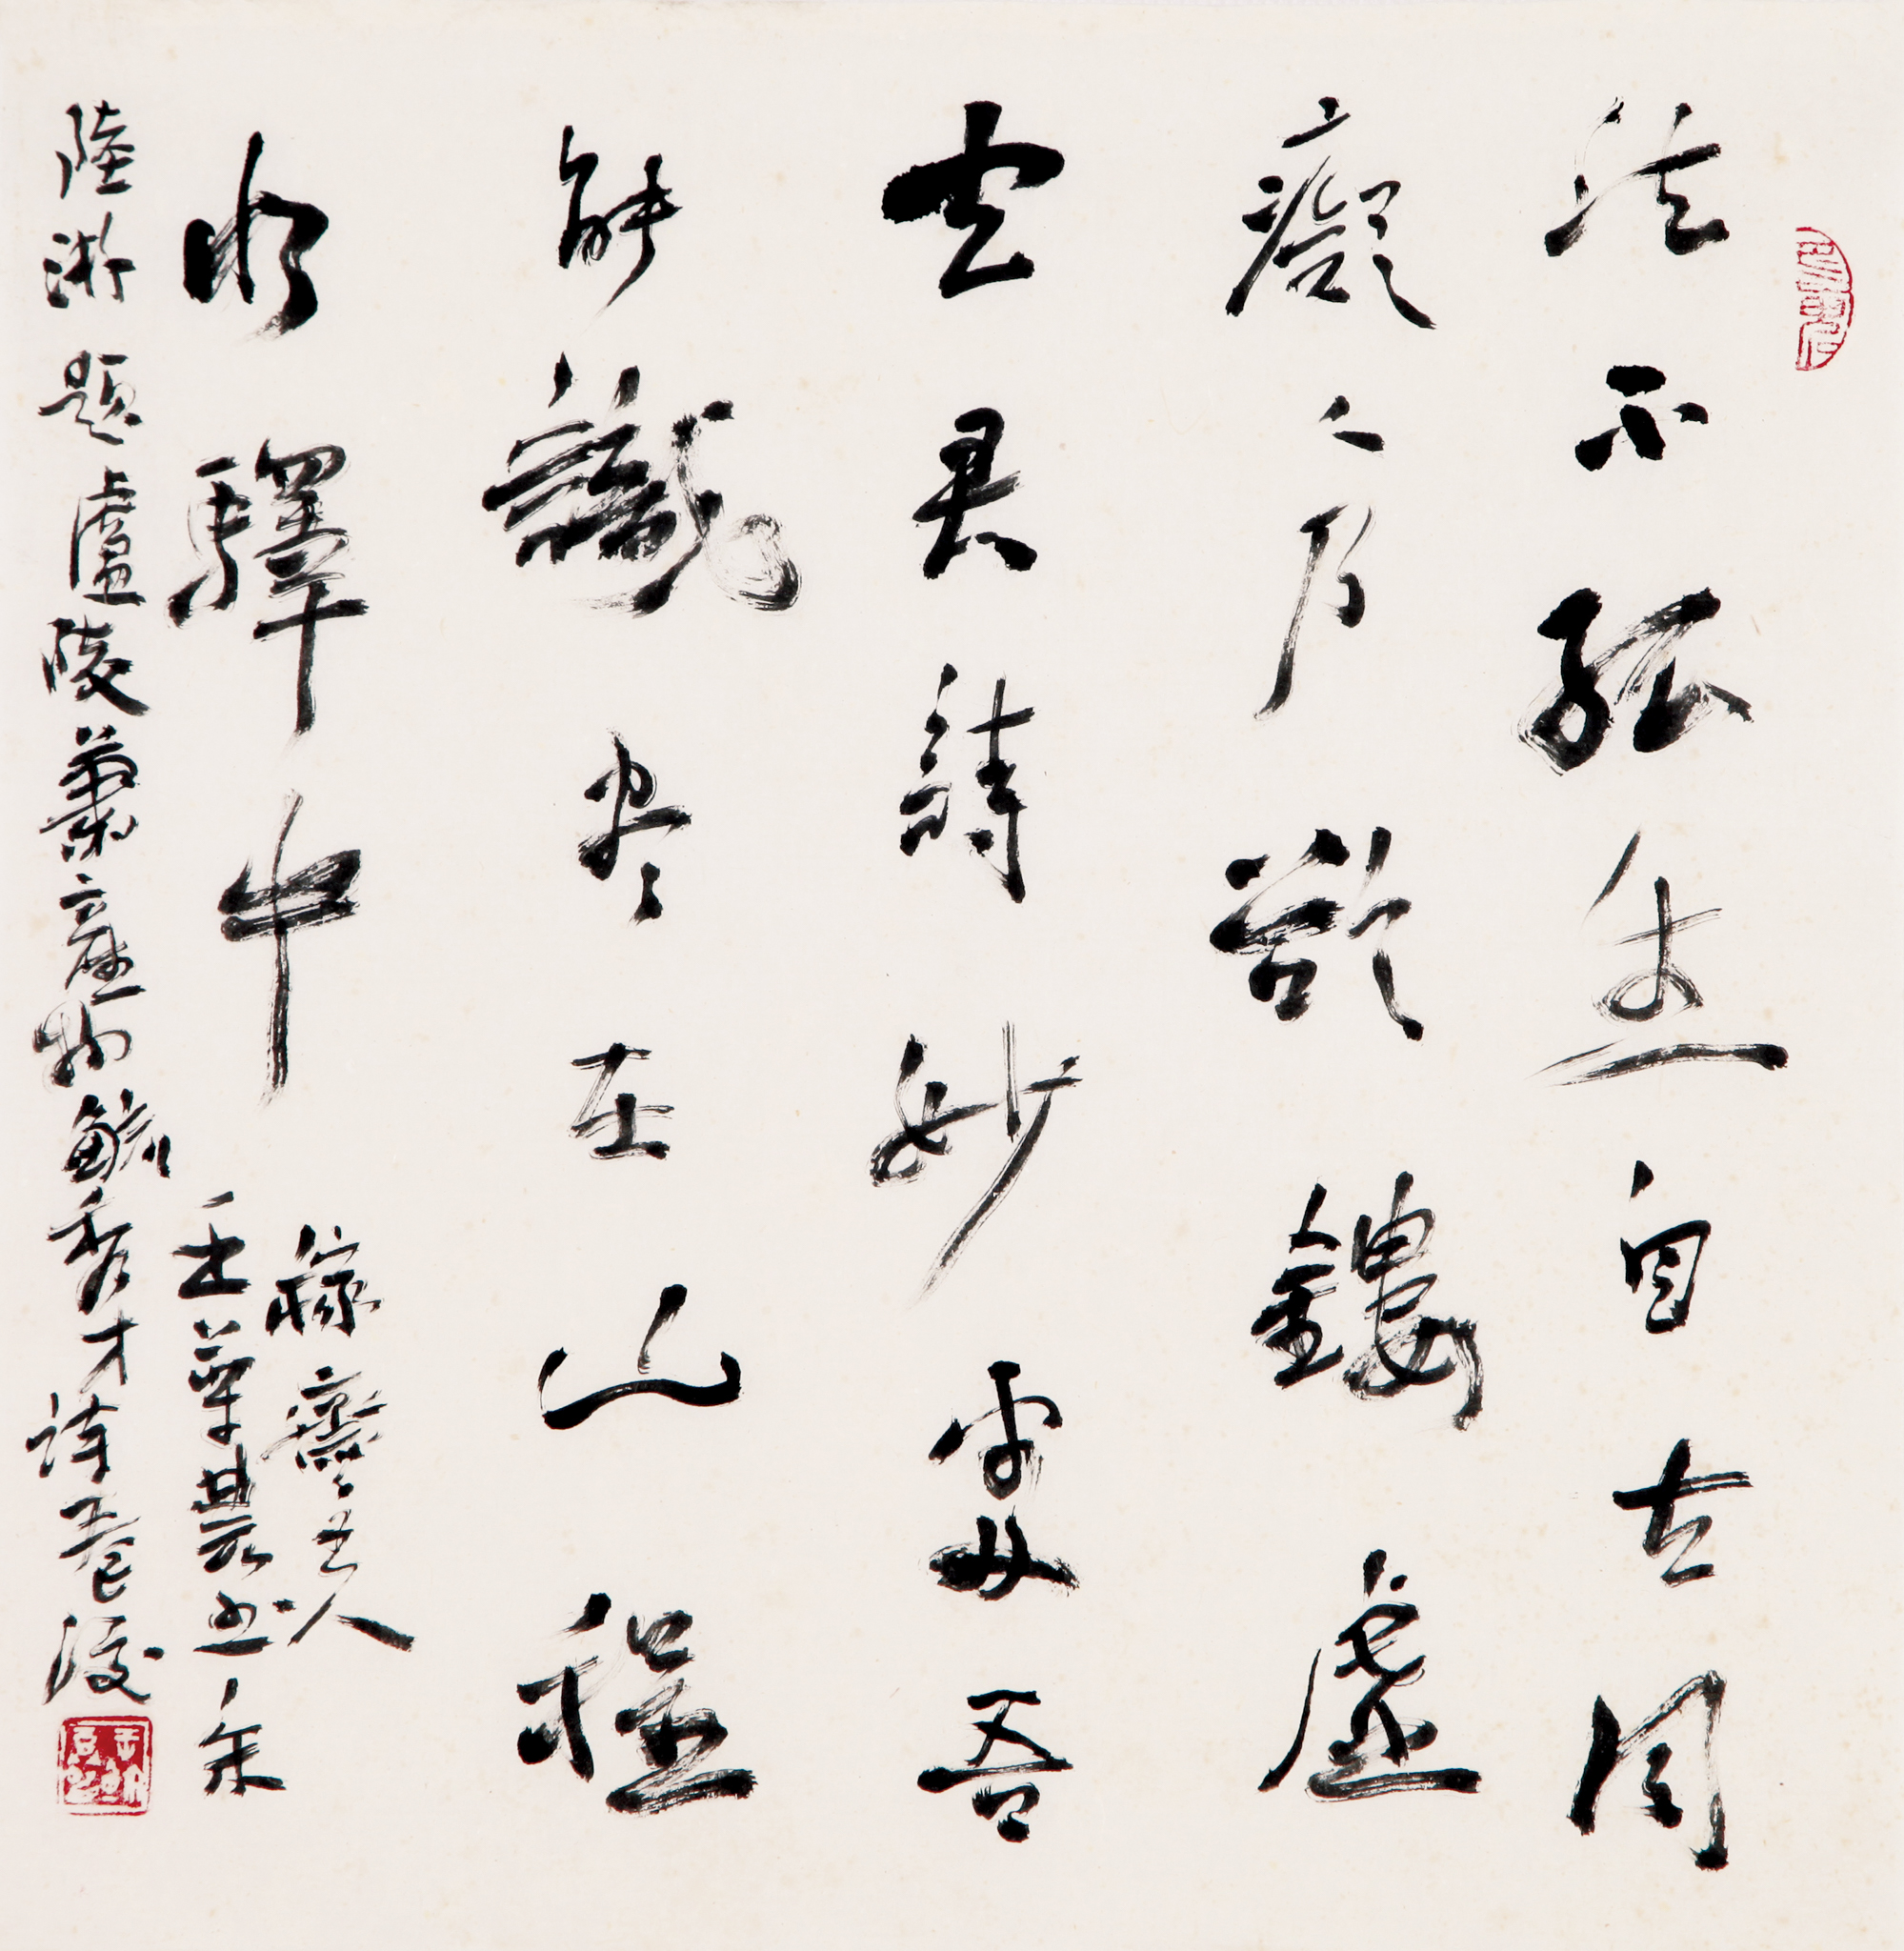 法不孤生自古同
癡人乃欲鏤虛
空君詩妙處吾
能識尽在山程
水驛中
主人
陸游題盧陵蕭彥毓秀才詩卷後